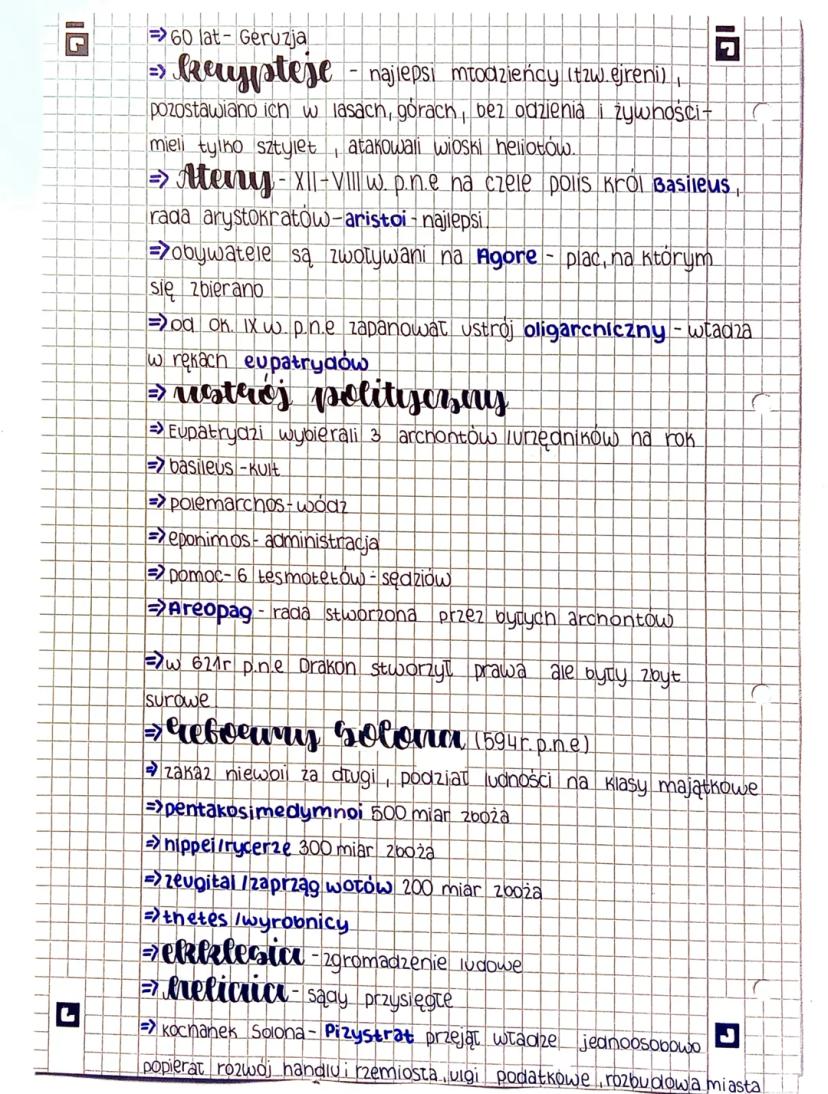 => 60 lat - Geruzja
=> krypteje - najlepsi młodzieńcy (tzw. ejreni),
pozostawiano ich w lasach, górach, bez odzienia i żywności-
mieli tylko sztylet, atakowali wioski heliotów.
=> Ateny - XII-VIII w. p.n.e na czele polis król Basileus,
rada arystokratów - aristoi - najlepsi
=> obywatele są zwoływani na Agore - plac, na którym
się zbierano
=> od ok. IX w. p.n.e zapanował ustrój oligarchiczny - władza
w rękach eupatrydów
=> ustrój polityczny
=> Eupatrydzi wybierali 3 archontów /urzędników na rok
=> basileus - kult
=> polemarchos - wódz
=> eponimos - administracja
=> pomoc - 6 tesmotetów - sędziów
=> Areopag - rada stworzona przez byłych archontów
=> w 621r p.n.e Drakon stworzył prawa ale były zbyt
surowe
=> reformy Solona (594r. p.n.e)
=> zakaz niewoli za długi, podział ludności na klasy majątkowe
=> pentakosimedymnoi 500 miar zboża
=> hippei/rycerze 300 miar zboża
=> zeugitai /zaprząg wołów 200 miar zboża
=> thetes /wyrobnicy
=> ekklesia - zgromadzenie ludowe
=> heliaia - sądy przysięgłe
=> kochanek Solona - Pizystrat przejął władze jednoosobowo
popierał rozwój handlu i rzemiosła, ulgi podatkowe, rozbudowa miasta